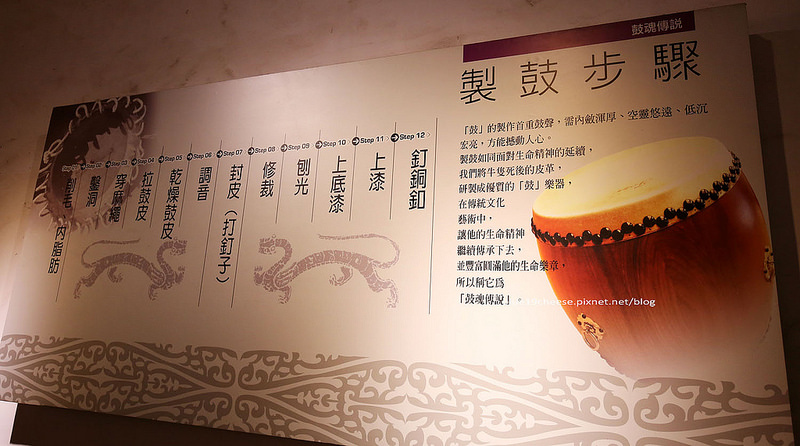 鼓魂傳說
製鼓步驟
「鼓」的製作首重鼓聲，需內斂渾厚、空靈悠遠、低沉
宏亮，方能撼動人心。
製鼓如同面對生命精神的延續，
我們將牛隻死後的皮革，
研製成優質的「鼓」樂器，
在傳統文化
藝術中，
讓他的生命精神
繼續傳承下去，
並豐富圓滿他的生命樂章，
所以稱它為
「鼓魂傳說」。
Step 01
刮毛、內脂肪
Step 02
鑿洞
Step 03
穿麻繩
Step 04
拉鼓皮
Step 05
乾燥鼓皮
Step 06
調音
Step 07
封皮（打釘子）
Step 08
修裁
Step 09
刨光
Step 10
上底漆
Step 11
上漆
Step 12
釘銅釦